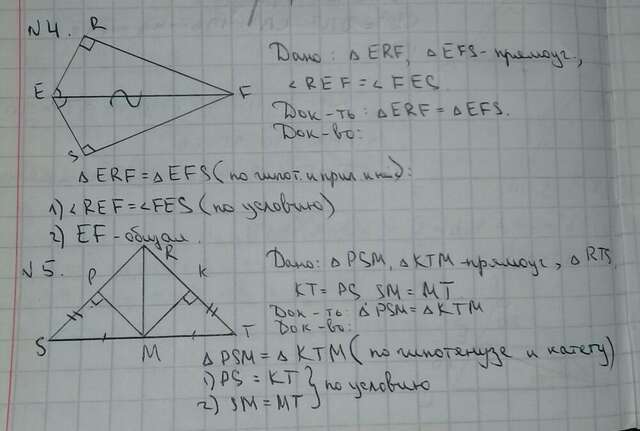 N4.
R
E
F
S
Дано: △ERF, △EFS - прямоуг.,
<REF = <FES.
Док-ть: △ERF = △EFS.
Док-во:
△ERF = △EFS (по гипот. и прил.
1) <REF = <FES (по условию)
2) EF - общая.
N5.
R
P
K
S
M
T
Дано: △PSM, △KTM - прямоуг., △RTS,
KT = PS, SM = MT
Док-ть: △PSM = △KTM
Док-во:
△PSM = △KTM (по гипотенузе и катету)
1) PS = KT } по условию
2) SM = MT